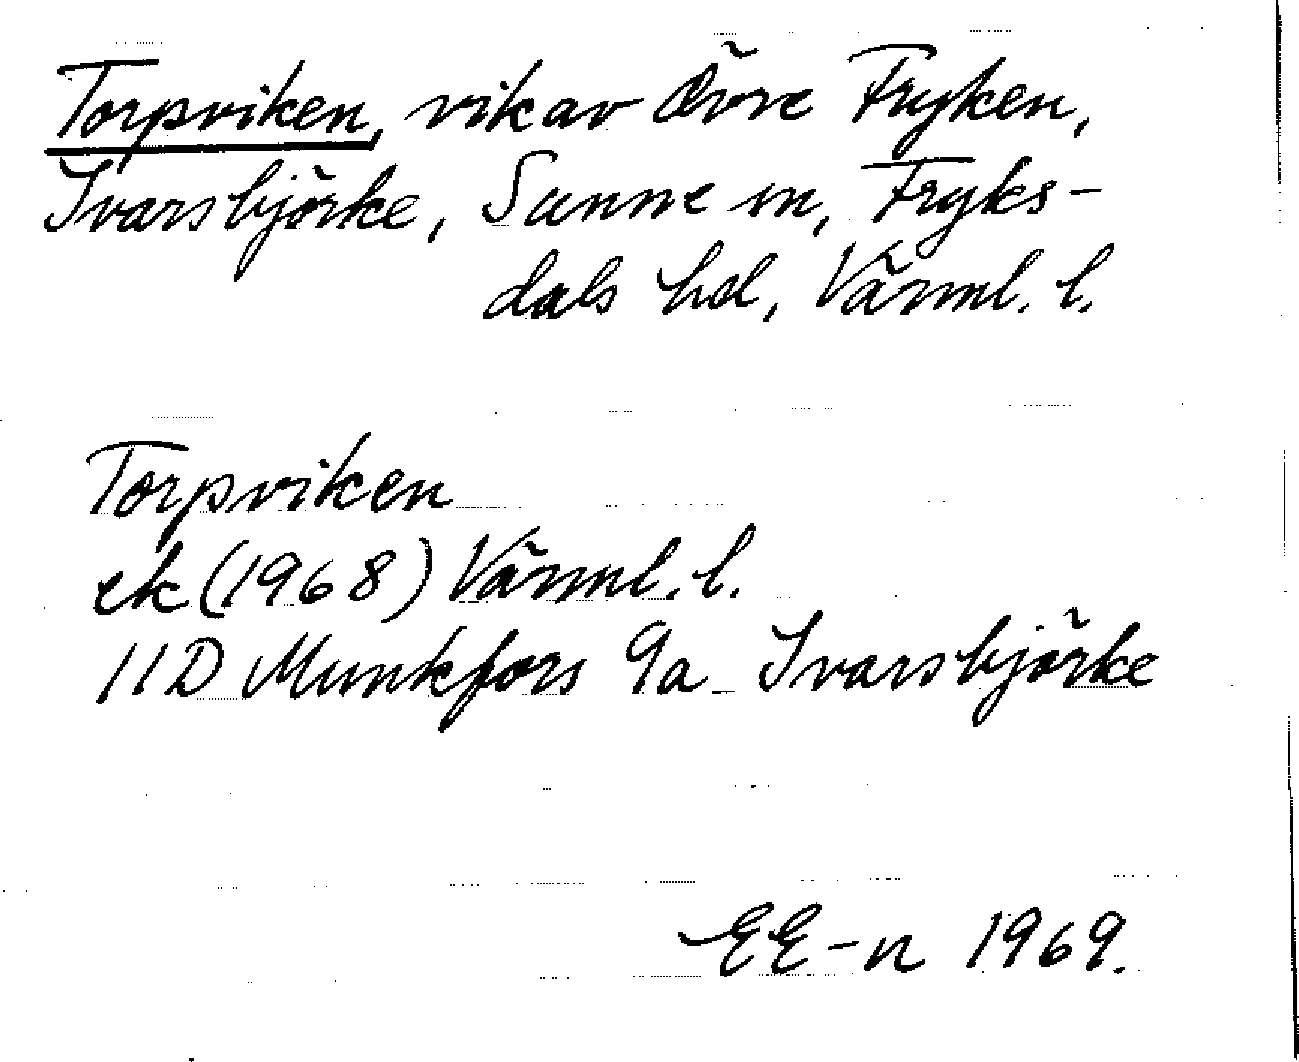 Torpviken, vik av Övre Fryken,
Ivarsbjörke, Sunne sn, Fryks-
dals hd, Värml. l.
Torpviken
ek (1968) Värml. l.
11D Munkfors 9a Ivarsbjörke
EE-n 1969.